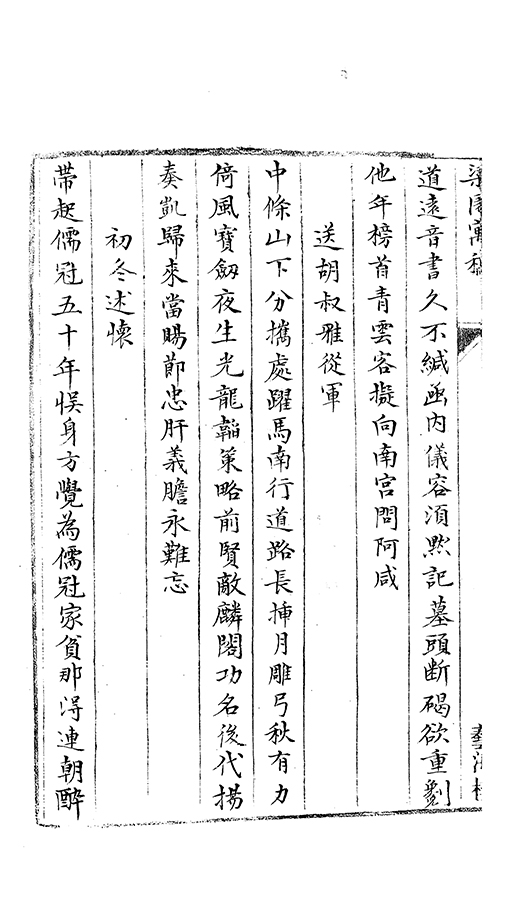 梁園寓稿
藝海樓
道遠音書久不緘凾内儀容湏黙記墓頭断碣欲重劖
他年榜首青雲客擬向南宮問阿咸
送胡叔雅從軍
中條山下分攜處躍馬南行道路長挿月雕弓秋有力
倚風寶劒夜生光龍韜策略前賢敵麟閣功名後代揚
奏凱歸來當賜節忠肝義膽永難忘
初冬述懷
帶起儒冠五十年悮身方覺為儒冠家貧那得連朝醉